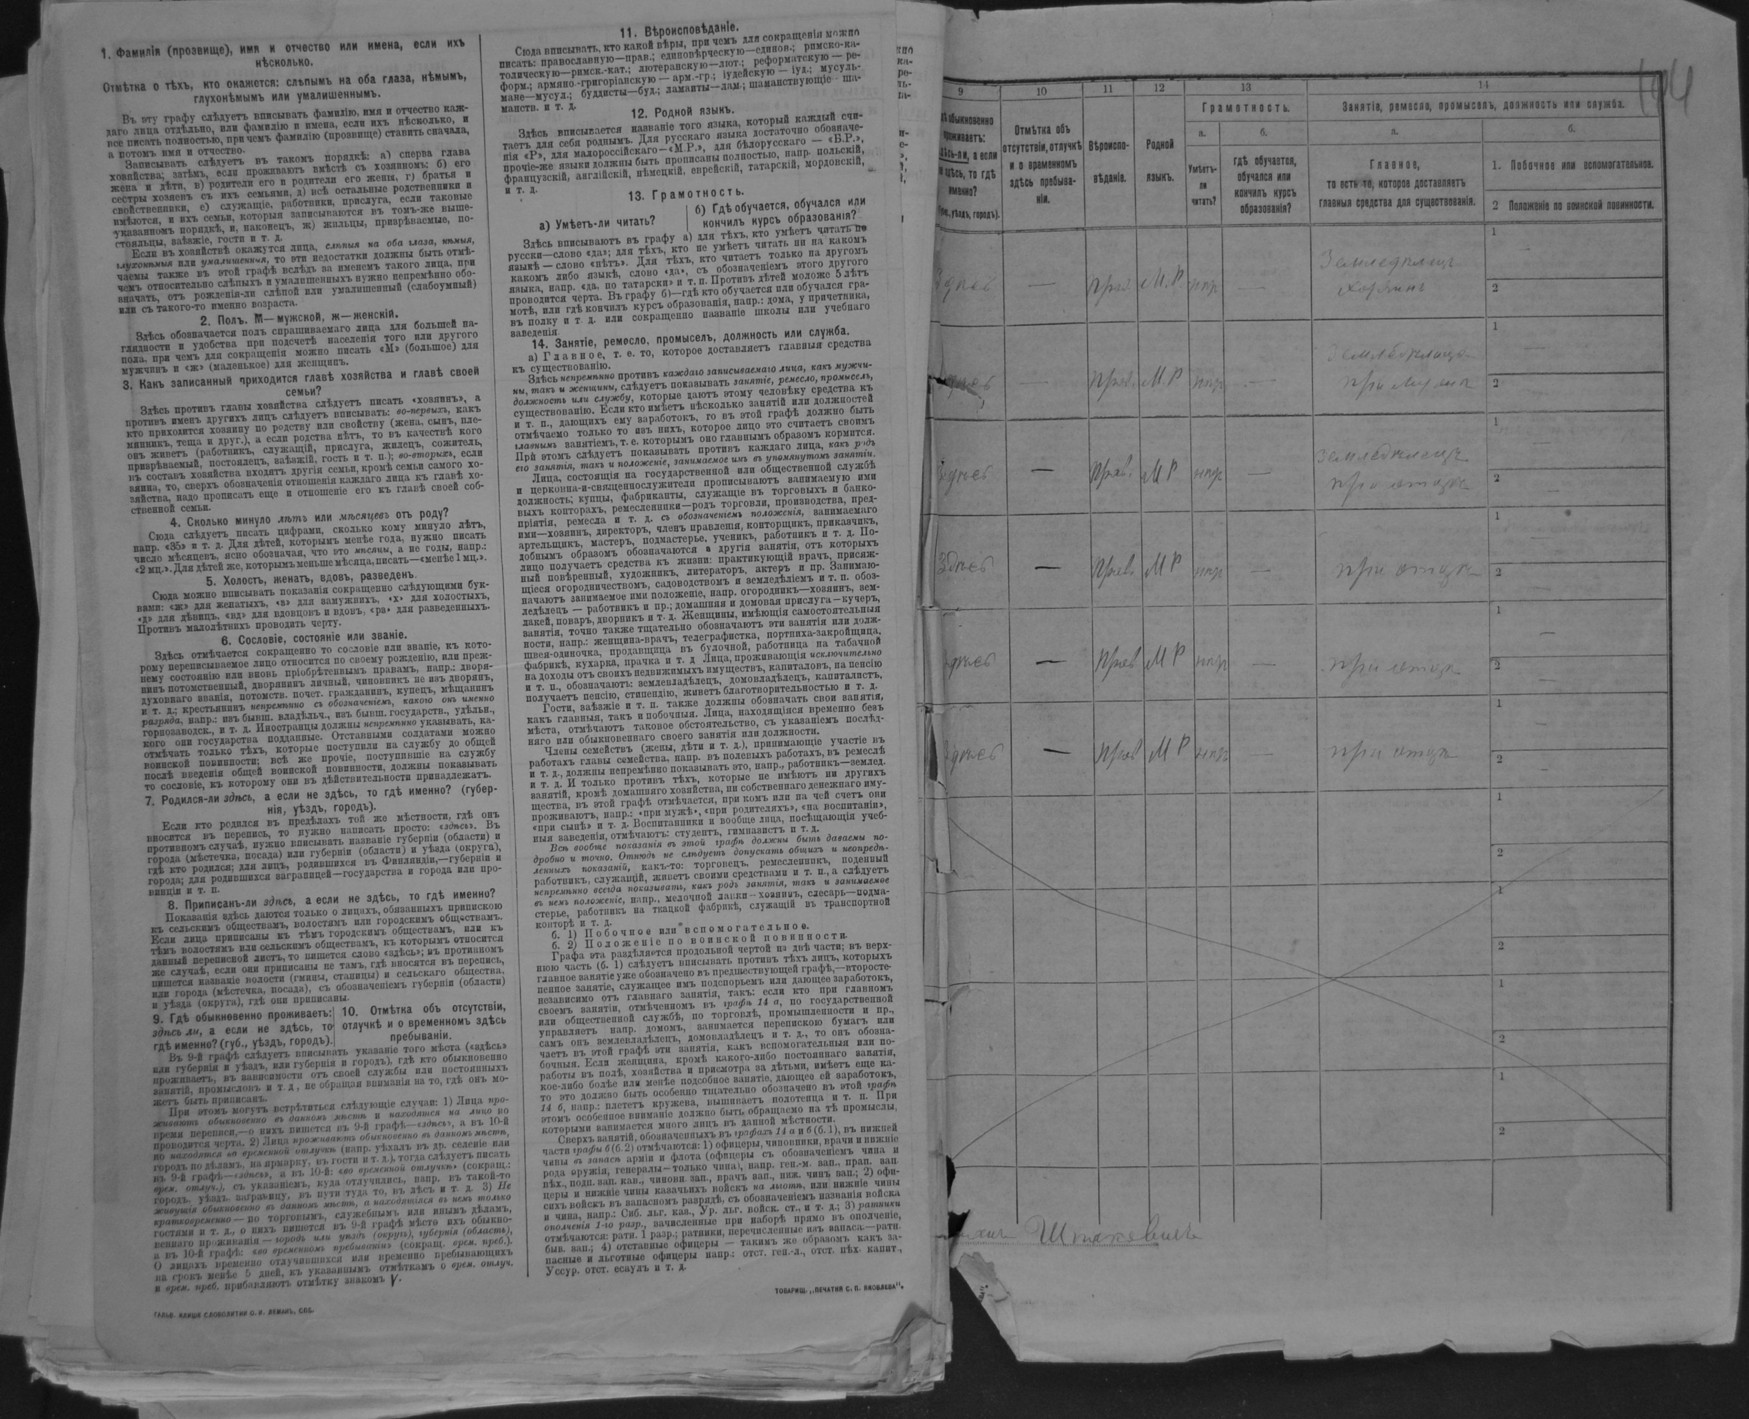 1. Фамилія (прозвище), имя и отчество или имена, если ихъ
нѣсколько.
Отмѣтка о тѣхъ, кто окажется: слѣпымъ на оба глаза, нѣмымъ,
глухонѣмымъ или умалишеннымъ.
Въ эту графу слѣдуетъ вписывать фамилію, имя и отчество каж-
даго лица отдѣльно, или фамилію и имена, если ихъ нѣсколько, и
все писать полностью, при чемъ фамилію (прозвище) ставить сначала,
а потомъ имя и отчество.
Записывать слѣдуетъ въ такомъ порядкѣ: а) сперва глава
хозяйства; затѣмъ, если проживаютъ вмѣстѣ съ хозяиномъ: б) его
жена и дѣти, в) родители его и родители его жены, г) братья и
сестры хозяевъ съ ихъ семьями, д) всѣ остальные родственники и
свойственники, е) служащіе, работники, прислуга, если таковые
имѣются, и ихъ семьи, которыя записываются въ томъ-же выше-
указанномъ порядкѣ, и, наконецъ, ж) жильцы, призрѣваемые, по-
стояльцы, заѣзжіе, гости и т. д.
Если въ хозяйствѣ окажутся лица, слѣпыя на оба глаза, нѣмыя,
глухонѣмыя или умалишенныя, то эти недостатки должны быть отмѣ-
чаемы также въ этой графѣ вслѣдъ за именемъ такого лица, при
чемъ относительно слѣпыхъ и умалишенныхъ нужно непремѣнно обо-
значать, отъ рожденія-ли слѣпой или умалишенный (слабоумный)
или съ такого-то именно возраста.
2. Полъ. М—мужской, ж—женскій.
Здѣсь обозначается полъ спрашиваемаго лица для большей на-
глядности и удобства при подсчетѣ населенія того или другого
пола, при чемъ для сокращенія можно писать «М» (большое) для
мужчинъ и «ж» (маленькое) для женщинъ.
3. Какъ записанный приходится главѣ хозяйства и главѣ своей
семьи?
Здѣсь противъ главы хозяйства слѣдуетъ писать «хозяинъ», а
противъ именъ другихъ лицъ слѣдуетъ вписывать: во-первыхъ, какъ
кто приходится хозяину по родству или свойству (жена, сынъ, пле-
мянникъ, теща и друг.), а если родства нѣтъ, то въ качествѣ кого
онъ живетъ (работникъ, служащій, прислуга, жилецъ, сожитель,
призрѣваемый, постоялецъ, заѣзжій, гость и т. п.); во-вторыхъ, если
въ составъ хозяйства входятъ другія семьи, кромѣ семьи самого хо-
зяина, то, сверхъ обозначенія отношенія каждаго лица къ главѣ хо-
зяйства, надо прописать еще и отношеніе его къ главѣ своей соб-
ственной семьи.
4. Сколько минуло лѣтъ или мѣсяцевъ отъ роду?
Сюда слѣдуетъ писать цифрами, сколько кому минуло лѣтъ,
напр. «35» и т. д. Для дѣтей, которымъ менѣе года, нужно писать
число мѣсяцевъ, ясно обозначая, что это мѣсяцы, а не годы, напр.:
«2 мц.». Для дѣтей же, которымъ меньше мѣсяца, писать—«менѣе 1 мц.».
5. Холостъ, женатъ, вдовъ, разведенъ.
Сюда можно вписывать показанія сокращенно слѣдующими бук-
вами: «ж» для женатыхъ, «з» для замужнихъ, «х» для холостыхъ,
«д» для дѣвицъ, «вд» для вдовцовъ и вдовъ, «рз» для разведенныхъ.
Противъ малолѣтнихъ проводить черту.
6. Сословіе, состояніе или званіе.
Здѣсь отмѣчается сокращенно то сословіе или званіе, къ кото-
рому переписываемое лицо относится по своему рожденію, или преж-
нему состоянію или вновь пріобрѣтеннымъ правамъ, напр.: дворя-
нинъ потомственный, дворянинъ личный, чиновникъ не изъ дворянъ,
духовнаго званія, потомств. почет. гражданинъ, купецъ, мѣщанинъ
и т. д.; крестьянинъ непремѣнно съ обозначеніемъ, какого онъ именно
разряда, напр.: изъ бывш. владѣльч., изъ бывш. государств., удѣльн.,
горнозаводск., и т. д. Иностранцы должны непремѣнно указывать, ка-
кого они государства подданные. Отставными солдатами можно
отмѣчать только тѣхъ, которые поступили на службу до общей
воинской повинности; всѣ же прочіе, поступившіе на службу
послѣ введенія общей воинской повинности, должны показывать
то сословіе, къ которому они въ дѣйствительности принадлежатъ.
7. Родился-ли здѣсь, а если не здѣсь, то гдѣ именно? (губер-
нія, уѣздъ, городъ).
Если кто родился въ предѣлахъ той же мѣстности, гдѣ онъ
вносится въ перепись, то нужно написать просто: «здѣсь». Въ
противномъ случаѣ, нужно вписывать названіе губерніи (области) и
города (мѣстечка, посада) или губерніи (области) и уѣзда (округа),
гдѣ кто родился; для лицъ, родившихся въ Финляндіи,—губерніи и
города; для родившихся заграницей—государства и города или про-
винціи и т. п.
8. Приписанъ-ли здѣсь, а если не здѣсь, то гдѣ именно?
Показанія здѣсь даются только о лицахъ, обязанныхъ припискою
къ сельскимъ обществамъ, волостямъ или городскимъ обществамъ.
Если лица приписаны къ тѣмъ городскимъ обществамъ, или къ
тѣмъ волостямъ или сельскимъ обществамъ, къ которымъ относится
данный переписной листъ, то пишется слово «здѣсь»; въ противномъ
же случаѣ, если они приписаны не тамъ, гдѣ вносятся въ перепись,
пишется названіе волости (гмины, станицы) и сельскаго общества,
или города (мѣстечка, посада), съ обозначеніемъ губерніи (области)
и уѣзда (округа), гдѣ они приписаны.
9. Гдѣ обыкновенно проживаетъ:
здѣсь ли, а если не здѣсь, то
гдѣ именно? (губ., уѣздъ, городъ).
10. Отмѣтка объ отсутствіи,
отлучкѣ и о временномъ здѣсь
пребываніи.
Въ 9-й графѣ слѣдуетъ вписывать указаніе того мѣста («здѣсь»
или губернія и уѣздъ, или губернія и городъ), гдѣ кто обыкновенно
проживаетъ, въ зависимости отъ своей службы или постоянныхъ
занятій, промысловъ и т. д., не обращая вниманія на то, гдѣ онъ мо-
жетъ быть приписанъ.
При этомъ могутъ встрѣтиться слѣдующіе случаи: 1) Лица про-
живаютъ обыкновенно въ данномъ мѣстѣ и находятся на лицо во
время переписи,—о нихъ пишется въ 9-й графѣ—«здѣсь», а въ 10-й
проводится черта. 2) Лица проживаютъ обыкновенно въ данномъ мѣстѣ,
но находятся во временной отлучкѣ (напр. уѣхалъ въ др. селеніе или
городъ по дѣламъ, на ярмарку, въ гости и т. д.), тогда слѣдуетъ писать
въ 9-й графѣ—«здѣсь», а въ 10-й: «во временной отлучкѣ» (сокращ.:
врем. отлуч.), съ указаніемъ, куда отлучились, напр. въ такой-то
городъ, уѣздъ, заграницу, въ пути туда то, въ лѣсъ и т. д. 3) Не
живущія обыкновенно въ данномъ мѣстѣ, а находятся въ немъ только
кратковременно—по торговымъ, служебнымъ или инымъ дѣламъ,
гостями и т. д., о нихъ пишется въ 9-й графѣ мѣсто ихъ обыкно-
веннаго проживанія—городъ или уѣздъ (округъ), губернія (область),
а въ 10-й графѣ: «во временномъ пребываніи» (сокращ. врем. преб.).
О лицахъ временно отлучившихся или временно пребывающихъ
на срокъ менѣе 5 дней, къ указаннымъ отмѣткамъ о врем. отлуч.
и врем. преб. прибавляютъ отмѣтку знакомъ V.
11. Вѣроисповѣданіе.
Сюда вписывать, кто какой вѣры, при чемъ для сокращенія можно
писать: православную—прав.; единовѣрческую—единов.; римско-ка-
толическую—римск.-кат.; лютеранскую—лют.; реформатскую—ре-
форм.; армяно-григоріанскую—арм.-гр.; іудейскую—іуд.; мусуль-
мане—мусул.; буддисты—буд.; ламаиты—лам.; шаманствующіе ша-
манств. и т. д.
12. Родной языкъ.
Здѣсь вписывается названіе того языка, который каждый счи-
таетъ для себя роднымъ. Для русскаго языка достаточно обозначе-
нія «Р», для малороссійскаго—«М.Р.», для бѣлорусскаго — «Б.Р.»,
прочіе-же языки должны быть прописаны полностью, напр. польскій,
французскій, англійскій, нѣмецкій, еврейскій, татарскій, мордовскій,
и т. д.
13. Грамотность.
а) Умѣетъ-ли читать?
б) Гдѣ обучается, обучался или
кончилъ курсъ образованія?
Здѣсь вписываютъ въ графу а) для тѣхъ, кто умѣетъ читать по
русски—слово «да»; для тѣхъ, кто не умѣетъ читать ни на какомъ
языкѣ — слово «нѣтъ». Для тѣхъ, кто читаетъ только на другомъ
какомъ либо языкѣ, слово «да», съ обозначеніемъ этого другого
языка, напр. «да, по татарски» и т. п. Противъ дѣтей моложе 5 лѣтъ
проводится черта. Въ графу б)—гдѣ кто обучается или обучался гра-
мотѣ, или гдѣ кончилъ курсъ образованія, напр.: дома, у причетника,
въ полку и т. д. или сокращенно названіе школы или учебнаго
заведенія.
14. Занятіе, ремесло, промыселъ, должность или служба.
а) Главное, т. е. то, которое доставляетъ главныя средства
къ существованію.
Здѣсь непремѣнно противъ каждаго записываемаго лица, какъ мужчи-
ны, такъ и женщины, слѣдуетъ показывать занятіе, ремесло, промыселъ,
должность или службу, которые даютъ этому человѣку средства къ
существованію. Если кто имѣетъ нѣсколько занятій или должностей
и т. п., дающихъ ему заработокъ, то въ этой графѣ должно быть
отмѣчаемо только то изъ нихъ, которое лицо это считаетъ своимъ
главнымъ занятіемъ, т. е. которымъ оно главнымъ образомъ кормится.
При этомъ слѣдуетъ показывать противъ каждаго лица, какъ родъ
его занятія, такъ и положеніе, занимаемое имъ въ упомянутомъ занятіи.
Лица, состоящія на государственной или общественной службѣ
и церковно-и-священнослужители прописываютъ занимаемую ими
должность; купцы, фабриканты, служащіе въ торговыхъ и банко-
выхъ конторахъ, ремесленники—родъ торговли, производства, пред-
пріятія, ремесла и т. д. съ обозначеніемъ положенія, занимаемаго
ими—хозяинъ, директоръ, членъ правленія, конторщикъ, приказчикъ,
артельщикъ, мастеръ, подмастерье, ученикъ, работникъ и т. д. По-
добнымъ образомъ обозначаются и другія занятія, отъ которыхъ
лицо получаетъ средства къ жизни: практикующій врачъ, присяж-
ный повѣренный, художникъ, литераторъ, актеръ и пр. Занимаю-
щіеся огородничествомъ, садоводствомъ и земледѣліемъ и т. п. обоз-
начаютъ занимаемое ими положеніе, напр. огородникъ—хозяинъ, зем-
ледѣлецъ — работникъ и пр.; домашняя и домовая прислуга—кучеръ,
лакей, поваръ, дворникъ и т. д. Женщины, имѣющія самостоятельныя
занятія, точно также тщательно обозначаютъ эти занятія или долж-
ности, напр.: женщина-врачъ, телеграфистка, портниха-закройщица,
швея-одиночка, продавщица въ булочной, работница на табачной
фабрикѣ, кухарка, прачка и т. д. Лица, проживающія исключительно
на доходы отъ своихъ недвижимыхъ имуществъ, капиталовъ, на пенсію
и т. п., обозначаютъ: землевладѣлецъ, домовладѣлецъ, капиталистъ,
получаетъ пенсію, стипендію, живетъ благотворительностью и т. д.
Гости, заѣзжіе и т. п. также должны обозначать свои занятія,
какъ главныя, такъ и побочныя. Лица, находящіяся временно безъ
мѣста, отмѣчаютъ таковое обстоятельство, съ указаніемъ послѣд-
няго или обыкновеннаго своего занятія или должности.
Члены семействъ (жены, дѣти и т. д.), принимающіе участіе въ
работахъ главы семейства, напр. въ полевыхъ работахъ, въ ремеслѣ
и т. д., должны непремѣнно показывать это, напр., работникъ—землед.
и т. д. И только противъ тѣхъ, которые не имѣютъ ни другихъ
занятій, кромѣ домашняго хозяйства, ни собственнаго денежнаго иму-
щества, въ этой графѣ отмѣчается, при комъ или на чей счетъ они
проживаютъ, напр.: «при мужѣ», «при родителяхъ», «на воспитаніи»,
«при сынѣ» и т. д. Воспитанники и вообще лица, посѣщающія учеб-
ныя заведенія, отмѣчаютъ: студентъ, гимназистъ и т. д.
Всѣ вообще показанія въ этой графѣ должны быть даваемы по-
дробно и точно. Отнюдь не слѣдуетъ допускать общихъ и неопредѣ-
ленныхъ показаній, какъ-то: торговецъ, ремесленникъ, поденный
работникъ, служащій, живетъ своими средствами и т. п., а слѣдуетъ
непремѣнно всегда показывать, какъ родъ занятія, такъ и занимаемое
въ немъ положеніе, напр., мелочной лавки—хозяинъ, слесарь—подма-
стерье, работникъ на ткацкой фабрикѣ, служащій въ транспортной
конторѣ и т. д.
б. 1) Побочное или вспомогательное.
б. 2) Положеніе по воинской повинности.
Графа эта раздѣляется продольной чертой на двѣ части; въ верх-
нюю часть (б. 1) слѣдуетъ вписывать противъ тѣхъ лицъ, которыхъ
главное занятіе уже обозначено въ предшествующей графѣ,—второсте-
пенное занятіе, служащее имъ подспорьемъ или дающее заработокъ,
независимо отъ главнаго занятія, такъ: если кто при главномъ
своемъ занятіи, отмѣченномъ въ графѣ 14 а, по государственной
или общественной службѣ, по торговлѣ, промышленности и пр.,
управляетъ напр. домомъ, занимается перепискою бумагъ или
самъ онъ землевладѣлецъ, домовладѣлецъ и т. д., то онъ обозна-
чаетъ въ этой графѣ эти занятія, какъ вспомогательныя или по-
бочныя. Если женщина, кромѣ какого-либо постояннаго занятія,
работы въ полѣ, хозяйства и присмотра за дѣтьми, имѣетъ еще ка-
кое-либо болѣе или менѣе подсобное занятіе, дающее ей заработокъ,
то это должно быть особенно тщательно обозначено въ этой графѣ
14 б, напр.: плететъ кружева, вышиваетъ полотенца и т. п. При
этомъ особенное вниманіе должно быть обращаемо на тѣ промыслы,
которыми занимается много лицъ въ данной мѣстности.
Сверхъ занятій, обозначенныхъ въ графахъ 14 а и б (б. 1), въ нижней
части графы б (б. 2) отмѣчаются: 1) офицеры, чиновники, врачи и нижніе
чины въ запасѣ арміи и флота (офицеры съ обозначеніемъ чина и
рода оружія, генералы—только чина), напр. ген.-м. зап., прап. зап.
пѣх., подп. зап. кав., чиновн. зап., врачъ зап., ниж. чинъ зап.; 2) офи-
церы и нижніе чины казачьихъ войскъ на льготѣ, или нижніе чины
сихъ войскъ въ запасномъ разрядѣ, съ обозначеніемъ названія войска
и чина, напр.: Сиб. льг. каз., Ур. льг. войск. ст., и т. д.; 3) ратники
ополченія 1-го разр., зачисленные при наборѣ прямо въ ополченіе,
отмѣчаются: ратн. 1 разр.; ратники, перечисленные изъ запаса.—ратн.
быв. зап.; 4) отставные офицеры — такимъ же образомъ какъ за-
пасные и льготные офицеры напр.: отст. ген.-л., отст. пѣх. капит.,
Уссур. отст. есаулъ и т. д.
ТОВАРИЩ. „ПЕЧАТНЯ С. П. ЯКОВЛЕВА“.
104
9 10 11 12 13 14
обыкновенно
проживаетъ:
здѣсь-ли, а если
не здѣсь, то гдѣ
именно?
уѣздъ, городъ).
Отмѣтка объ
отсутствіи, отлучкѣ
и о временномъ
здѣсь пребыва-
ніи.
Вѣроиспо-
вѣданіе.
Родной
языкъ.
Грамотность.
а. б.
Умѣетъ-
ли
читать?
гдѣ обучается,
обучался или
кончилъ курсъ
образованія?
Занятія, ремесло, промыселъ, должность или служба.
а. б.
Главное,
то есть то, которое доставляетъ
главныя средства для существованія.
1. Побочное или вспомогательное.
2 Положеніе по воинской повинности.
1
Земледѣлецъ
— М.Р. — хозяинъ 2
1
— М Р — при мужѣ 2
1
— М Р — при отцѣ 2
1
Здѣсь — М Р — при отцѣ 2
1
— М Р — при отцѣ 2
1
— М Р — при отцѣ 2
1
2
1
2
1
2
1
2